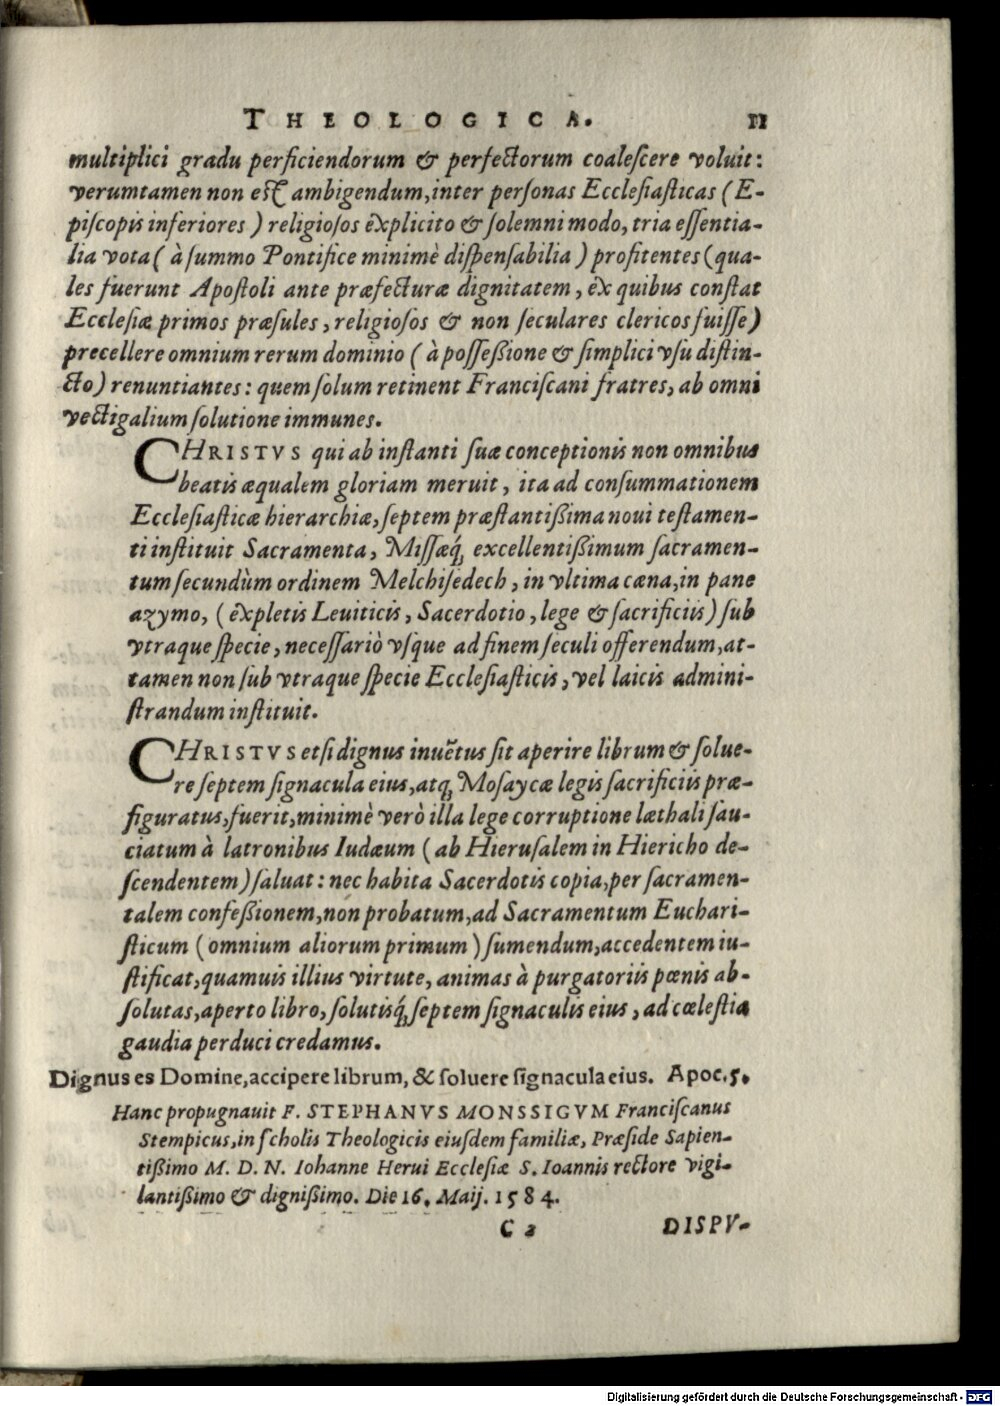 THEOLOGICA. 11
multiplici gradu perficiendorum & perfectorum coaleſcere voluit:
verumtamen non eſt ambigendum, inter perſonas Eccleſiaſticas (E-
piſcopis inferiores) religioſos explicito & ſolemni modo, tria eſſentia-
lia vota (à ſummo Pontifice minimè diſpenſabilia) profitentes (qua-
les fuerunt Apoſtoli ante præfecturæ dignitatem, ex quibus conſtat
Eccleſiæ primos præſules, religioſos & non ſeculares clericos fuiſſe)
precellere omnium rerum dominio (à poſſeßione & ſimplici vſu diſtin-
cto) renuntiantes: quem ſolum retinent Franciſcani fratres, ab omni
vectigalium ſolutione immunes.
CHRISTVS qui ab inſtanti ſuæ conceptionis non omnibus
beatis æqualem gloriam meruit, ita ad conſummationem
Eccleſiaſticæ hierarchiæ, ſeptem præſtantißima noui teſtamen-
ti inſtituit Sacramenta, Miſſæq́; excellentißimum ſacramen-
tum ſecundùm ordinem Melchiſedech, in vltima cæna, in pane
azymo, (expletis Leuiticis, Sacerdotio, lege & ſacrificiis) ſub
vtraque ſpecie, neceſſariò vſque ad finem ſeculi offerendum, at-
tamen non ſub vtraque ſpecie Eccleſiaſticis, vel laicis admini-
ſtrandum inſtituit.
CHRISTVS etſi dignus inuẽtus ſit aperire librum & ſolue-
re ſeptem ſignacula eius, atq; Moſaycæ legis ſacrificiis præ-
figuratus, fuerit, minimè verò illa lege corruptione læthali ſau-
ciatum à latronibus Iudæum (ab Hieruſalem in Hiericho de-
ſcendentem) ſaluat: nec habita Sacerdotis copia, per ſacramen-
talem confeßionem, non probatum, ad Sacramentum Euchari-
ſticum (omnium aliorum primum) ſumendum, accedentem iu-
ſtificat, quamuis illius virtute, animas à purgatoriis pœnis ab-
ſolutas, aperto libro, ſolutisq́; ſeptem ſignaculis eius, ad cœleſtia
gaudia perduci credamus.
Dignus es Domine, accipere librum, & ſoluere ſignacula eius. Apoc. 5.
Hanc propugnauit F. STEPHANVS MONSSIGVM Franciſcanus
Stempicus, in ſcholis Theologicis eiuſdem familiæ, Præſide Sapien-
tißimo M. D. N. Iohanne Herui Eccleſiæ S. Ioannis rectore vigi-
lantißimo & dignißimo. Die 16. Maij. 1584.
C 2 DISPV-
Digitalisierung gefördert durch die Deutsche Forschungsgemeinschaft - DFG